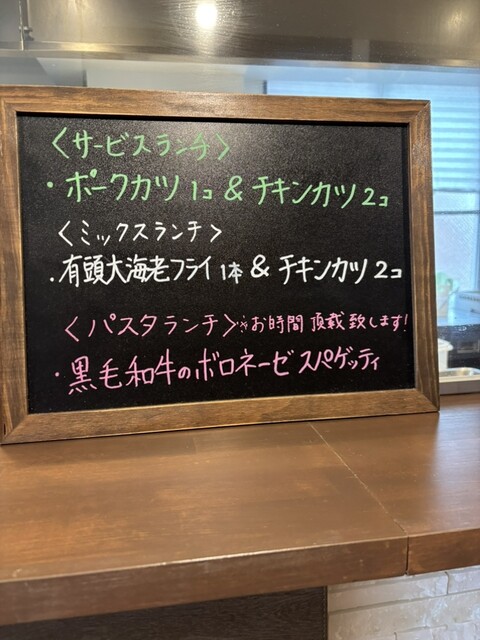 〈サービスランチ〉
・ポークカツ 1コ & チキンカツ 2コ
〈ミックスランチ〉
・有頭大海老フライ 1本 & チキンカツ 2コ
〈パスタランチ〉※お時間 頂載致します!
・黒毛和牛のボロネーゼ スパゲッティ